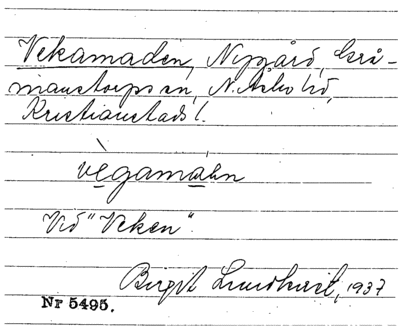 Vekamaden, Nygård, Grå-
manstorps sn, N. Åsbo hd,
Kristianstads l.
vègamáan
Vid "Veken".
Birgit Lundkvist, 1937
Nr 5495.